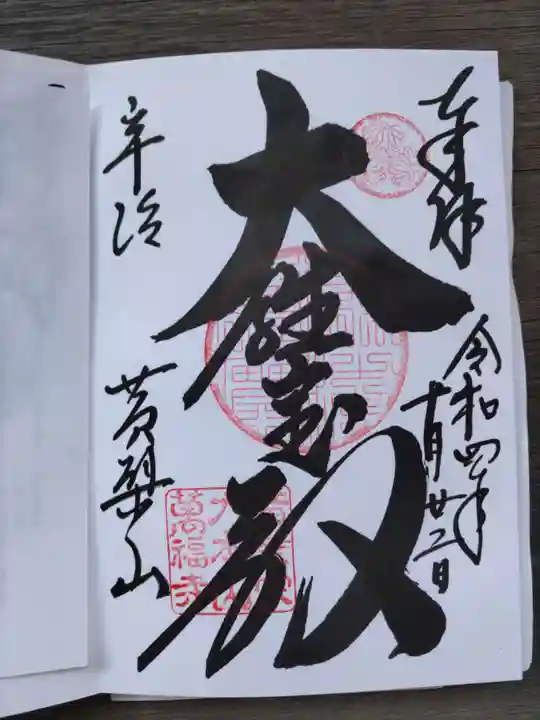 奉拝
令和四年
十月廿二日
大雄宝殿
宇治
黄檗山
萬福寺